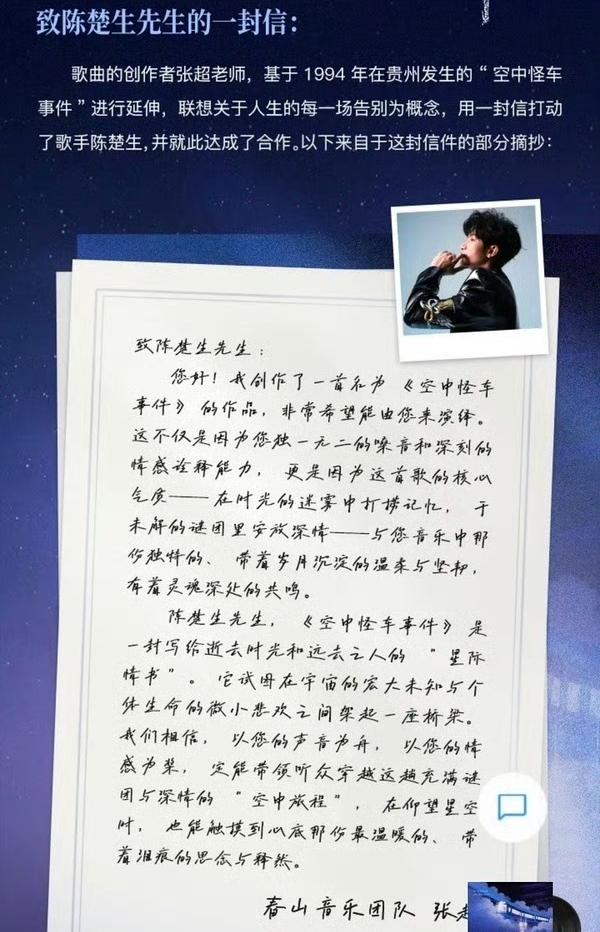 致陈楚生先生的一封信：
歌曲的创作者张超老师，基于 1994 年在贵州发生的“空中怪车
事件”进行延伸，联想关于人生的每一场告别为概念，用一封信打动
了歌手陈楚生，并就此达成了合作。以下来自于这封信件的部分摘抄：
致陈楚生先生：
您好！我创作了一首名为《空中怪车
事件》的作品，非常希望能由您来演绎。
这不仅是因为您独一无二的嗓音和深刻的
情感诠释能力，更是因为这首歌的核心
气质——在时光的迷雾中打捞记忆，于
未解的谜团里安放深情——与您音乐中那
份独特的、带着岁月沉淀的温柔与坚韧，
有着灵魂深处的共鸣。
陈楚生先生，《空中怪车事件》是
一封写给逝去时光和远去之人的“星际
情书”。它试图在宇宙的宏大未知与个
体生命的微小悲欢之间架起一座桥梁。
我们相信，以您的声音为舟，以您的情
感为桨，定能带领听众穿越这趟充满谜
团与深情的“空中旅程”，在仰望星空
时，也能触摸到心底那份最温暖的、带
着泪痕的思念与释然。
春山音乐团队 张